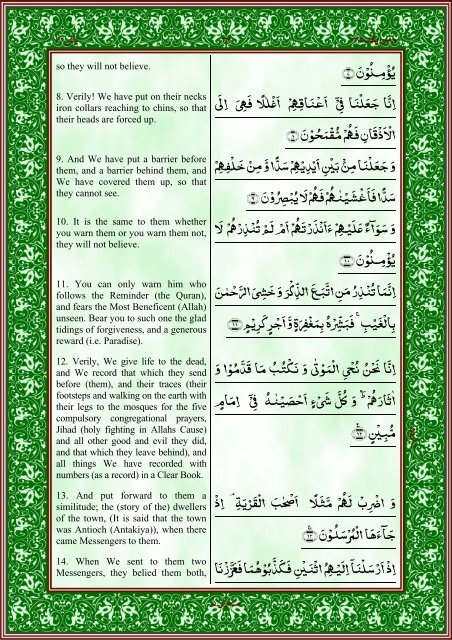 so they will not believe.
يُؤْمِنُوْنَ ﴿۷﴾
8. Verily! We have put on their necks
iron collars reaching to chins, so that
their heads are forced up.
اِنَّا جَعَلْنَا فِيْۤ اَعْنَاقِهِمْ اَغْلٰلًا فَهِيَ اِلَى
الْاَذْقَانِ فَهُمْ مُّقْمَحُوْنَ ﴿۸﴾
9. And We have put a barrier before
them, and a barrier behind them, and
We have covered them up, so that
they cannot see.
وَ جَعَلْنَا مِنْۢ بَيْنِ اَيْدِيْهِمْ سَدًّا وَّ مِنْ خَلْفِهِمْ
سَدًّا فَاَغْشَيْنٰهُمْ فَهُمْ لَا يُبْصِرُوْنَ ﴿۹﴾
10. It is the same to them whether
you warn them or you warn them not,
they will not believe.
وَ سَوَآءٌ عَلَيْهِمْ ءَاَنْذَرْتَهُمْ اَمْ لَمْ تُنْذِرْهُمْ لَا
يُؤْمِنُوْنَ ﴿۱۰﴾
11. You can only warn him who
follows the Reminder (the Quran),
and fears the Most Beneficent (Allah)
unseen. Bear you to such one the glad
tidings of forgiveness, and a generous
reward (i.e. Paradise).
اِنَّمَا تُنْذِرُ مَنِ اتَّبَعَ الذِّكْرَ وَ خَشِيَ الرَّحْمٰنَ
بِالْغَيْبِ ۚ فَبَشِّرْهُ بِمَغْفِرَةٍ وَّ اَجْرٍ كَرِيْمٍ ﴿۱۱﴾
12. Verily, We give life to the dead,
and We record that which they send
before (them), and their traces (their
footsteps and walking on the earth with
their legs to the mosques for the five
compulsory congregational prayers,
Jihad (holy fighting in Allahs Cause)
and all other good and evil they did,
and that which they leave behind), and
all things We have recorded with
numbers (as a record) in a Clear Book.
اِنَّا نَحْنُ نُحْيِ الْمَوْتٰى وَ نَكْتُبُ مَا قَدَّمُوْا وَ
اٰثَارَهُمْ ۭ وَ كُلَّ شَيْءٍ اَحْصَيْنٰهُ فِيْۤ اِمَامٍ
مُّبِيْنٍ ﴿۱۲﴾
13. And put forward to them a
similitude; the (story of the) dwellers
of the town, (It is said that the town
was Antioch (Antakiya)), when there
came Messengers to them.
وَ اضْرِبْ لَهُمْ مَّثَلًا اَصْحٰبَ الْقَرْيَةِ ۘ اِذْ
جَآءَهَا الْمُرْسَلُوْنَ ﴿۱۳﴾
14. When We sent to them two
Messengers, they belied them both,
اِذْ اَرْسَلْنَاۤ اِلَيْهِمُ اثْنَيْنِ فَكَذَّبُوْهُمَا فَعَزَّزْنَا